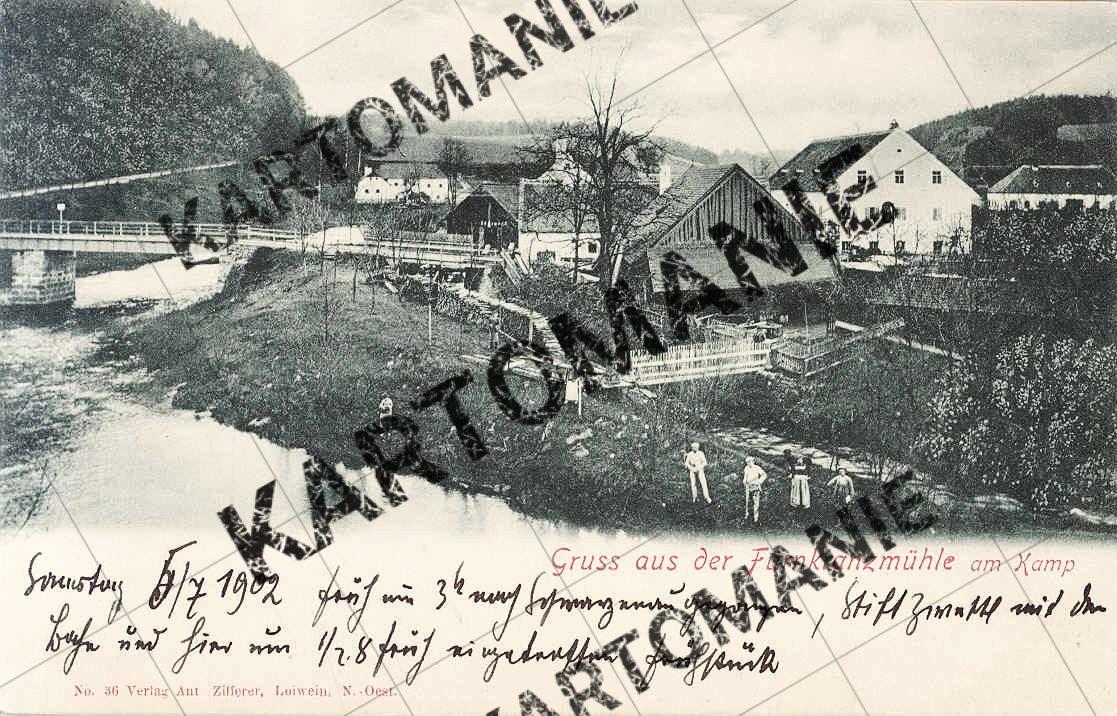 KARTOMANIE
KARTOMANIE
KARTOMANIE
Gruss aus der Fürnkranzmühle am Kamp
Samstag 5/7 1902 früh um 3h nach Schwarzenau gegangen, Stift Zwettl mit der
Bahn und hier um 1/2 8 früh eingetroffen Frühstück
No. 36 Verlag Ant Zifferer, Loiwein, N.-Oest.
KARTOMANIE